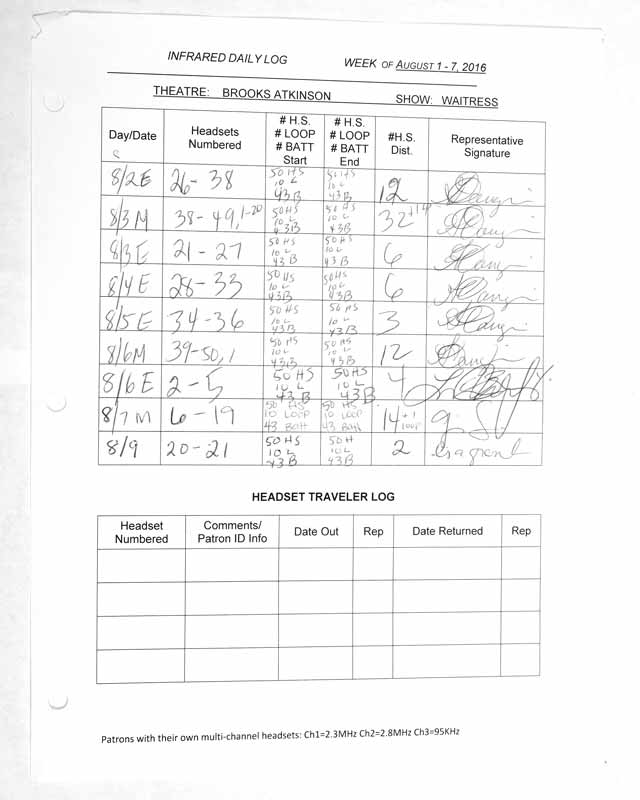 INFRARED DAILY LOG WEEK OF AUGUST 1 - 7, 2016
THEATRE: BROOKS ATKINSON SHOW: WAITRESS
Day/Date Headsets Numbered # H.S. # LOOP # BATT Start # H.S. # LOOP # BATT End #H.S. Dist. Representative Signature
8/2E 26 - 38 50 HS 10 L 43 B 50 HS 10 L 43 B 12
8/3 M 38 - 49, 1-20 50 HS 10 L 43 B 50 HS 10 L 43 B 32
8/3 E 21 - 27 50 HS 10 L 43 B 50 HS 10 L 43 B 6
8/4 E 28 - 33 50 HS 10 L 43 B 50 HS 10 L 43 B 6
8/5 E 34 - 36 50 HS 10 L 43 B 50 HS 10 L 43 B 3
8/6 M 39 - 50, 1 50 HS 10 L 43 B 50 HS 10 L 43 B 12
8/6 E 2 - 5 50 HS 10 L 43 B 50 HS 10 L 43 B 4
8/7 M 6 - 19 50 HS 10 LOOP 43 BATT 50 HS 10 LOOP 43 BATT 14 +1 LOOP
8/9 20 - 21 50 HS 10 L 43 B 50 H 10 L 43 B 2
HEADSET TRAVELER LOG
Headset Numbered Comments/ Patron ID Info Date Out Rep Date Returned Rep
Patrons with their own multi-channel headsets: Ch1=2.3MHz Ch2=2.8MHz Ch3=95KHz